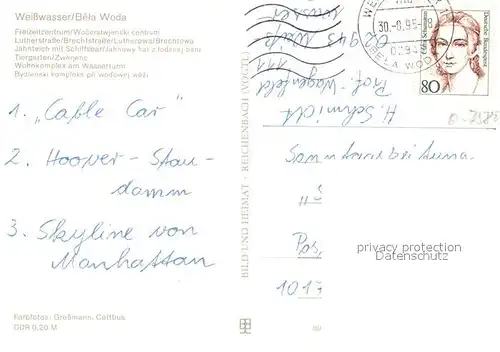 Weißwasser/Běla Woda
Freizeitzentrum/Wočerstwjenski centrum
Lutherstraße/Brechtstraße/Lutherowa/Brechtowa
Jahnteich mit Schiffsbar/Jahnowy hat z łodźnej baru
Tiergarten/Zwěrjenc
Wohnkomplex am Wasserturm
Bydlenski kompleks při wodowej wěži
1. „Cable Car"
2. Hoover-Stau-
damm
3. Skyline von
Manhattan
Farbfotos: Großmann, Cottbus
DDR 0,20 M
BILD UND HEIMAT · REICHENBACH (VOGTL)
H. Schmidt
Prof.-Wagenfeld
111
02943
30.-8.95-8
02943
BELA WOD
Deutsche Bundespost
Clara Schumann
80
Pos
1017
privacy protection
Datenschutz